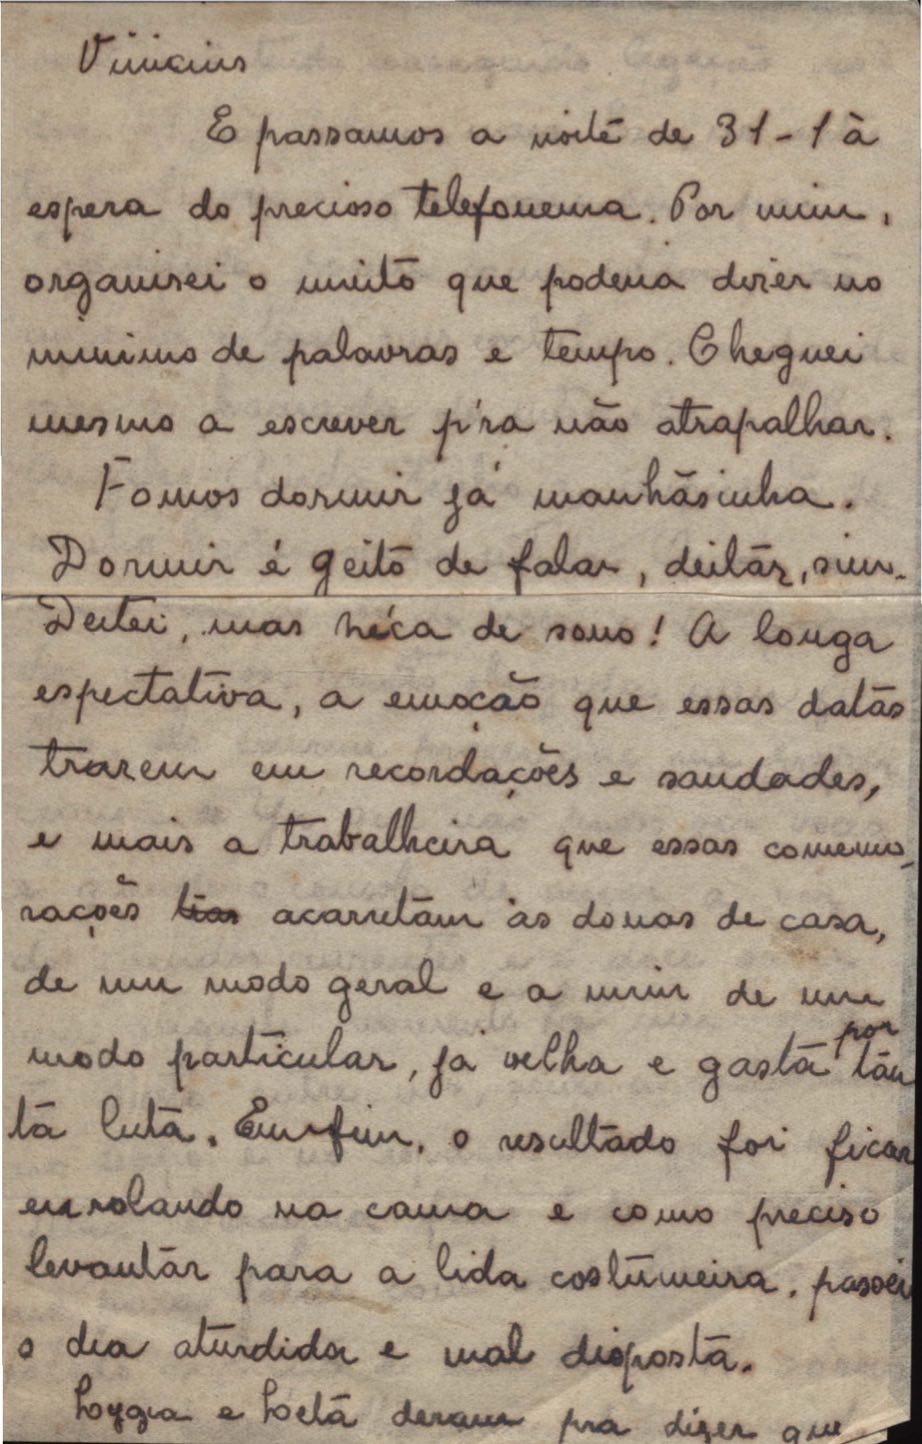 Vinicius
E passamos a noite de 31-1 à
espera do precioso telefonema. Por mim,
organisei o muito que poderia dizer no
minimo de palavras e tempo. Cheguei
mesmo a escrever p'ra não atrapalhar.
Fomos dormir já manhãsinha.
Dormir é geito de falar, deitar, sim.
Deitei, mas néca de sono! A longa
espectativa, a emoção que essas datas
trazem em recordações e saudades,
e mais a trabalheira que essas comemo-
rações tias acarretam às donas de casa,
de um modo geral e a mim de um
modo particular, já velha e gasta por tan
ta luta. Emfim, o resultado foi ficar
enrolando na cama e como preciso
levantar para a lida costumeira, passei
o dia aturdida e mal disposta.
Lygia e Loetá deram pra dizer que